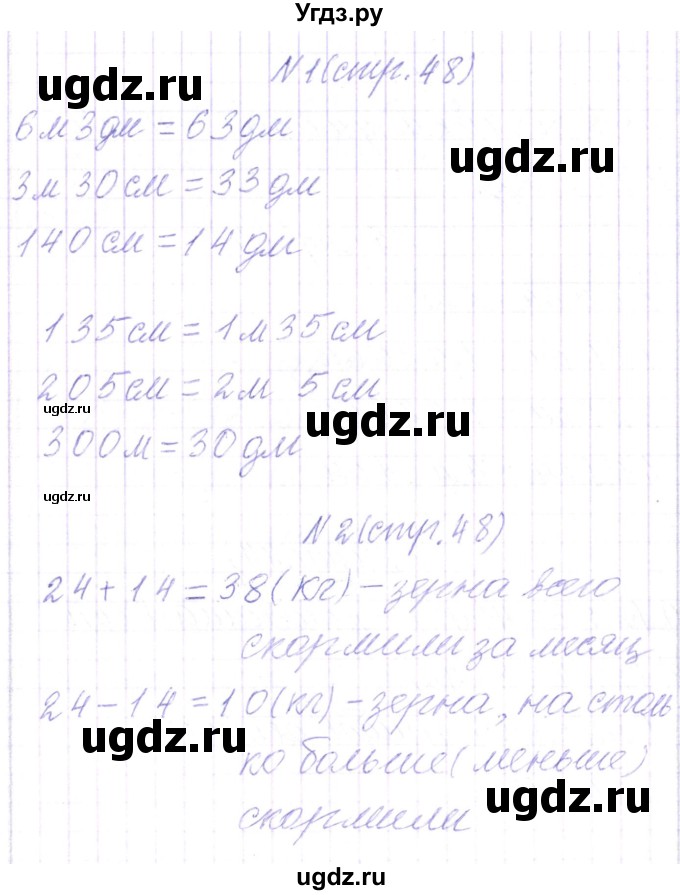 Угдз.ру
ugdz.ru
N1(стр.48)
6м3дм=63дм
ugdz.ru
3м 30см=33дм
140см=14дм
135см=1м35см
205см=2м 5см
ugdz.ru
ugdz.ru
300м=30дм
ugdz.ru
N2(стр.48)
24+14=38(кг)-зерна всего
скормили за месяц
24-14=10(кг)-зерна, на столь
ugdz.ru
ко больше(меньше)
ugdz.ru
скормили
ugdz.ru